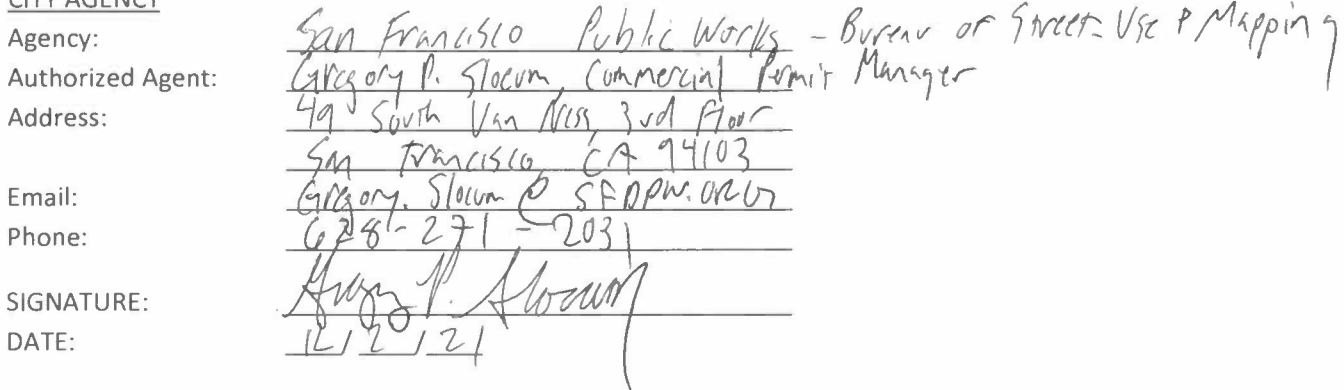 CITY AGENCY
Agency: San Francisco Public Works - Bureau of Street-Use & Mapping
Authorized Agent: Gregory P. Slocum, Commercial Permit Manager
Address: 49 South Van Ness, 3rd Floor
San Francisco, CA 94103
Email: Gregory.Slocum@SFDPW.ORG
Phone: 628-271-2031
SIGNATURE: Gregory P. Slocum
DATE: 12/2/21